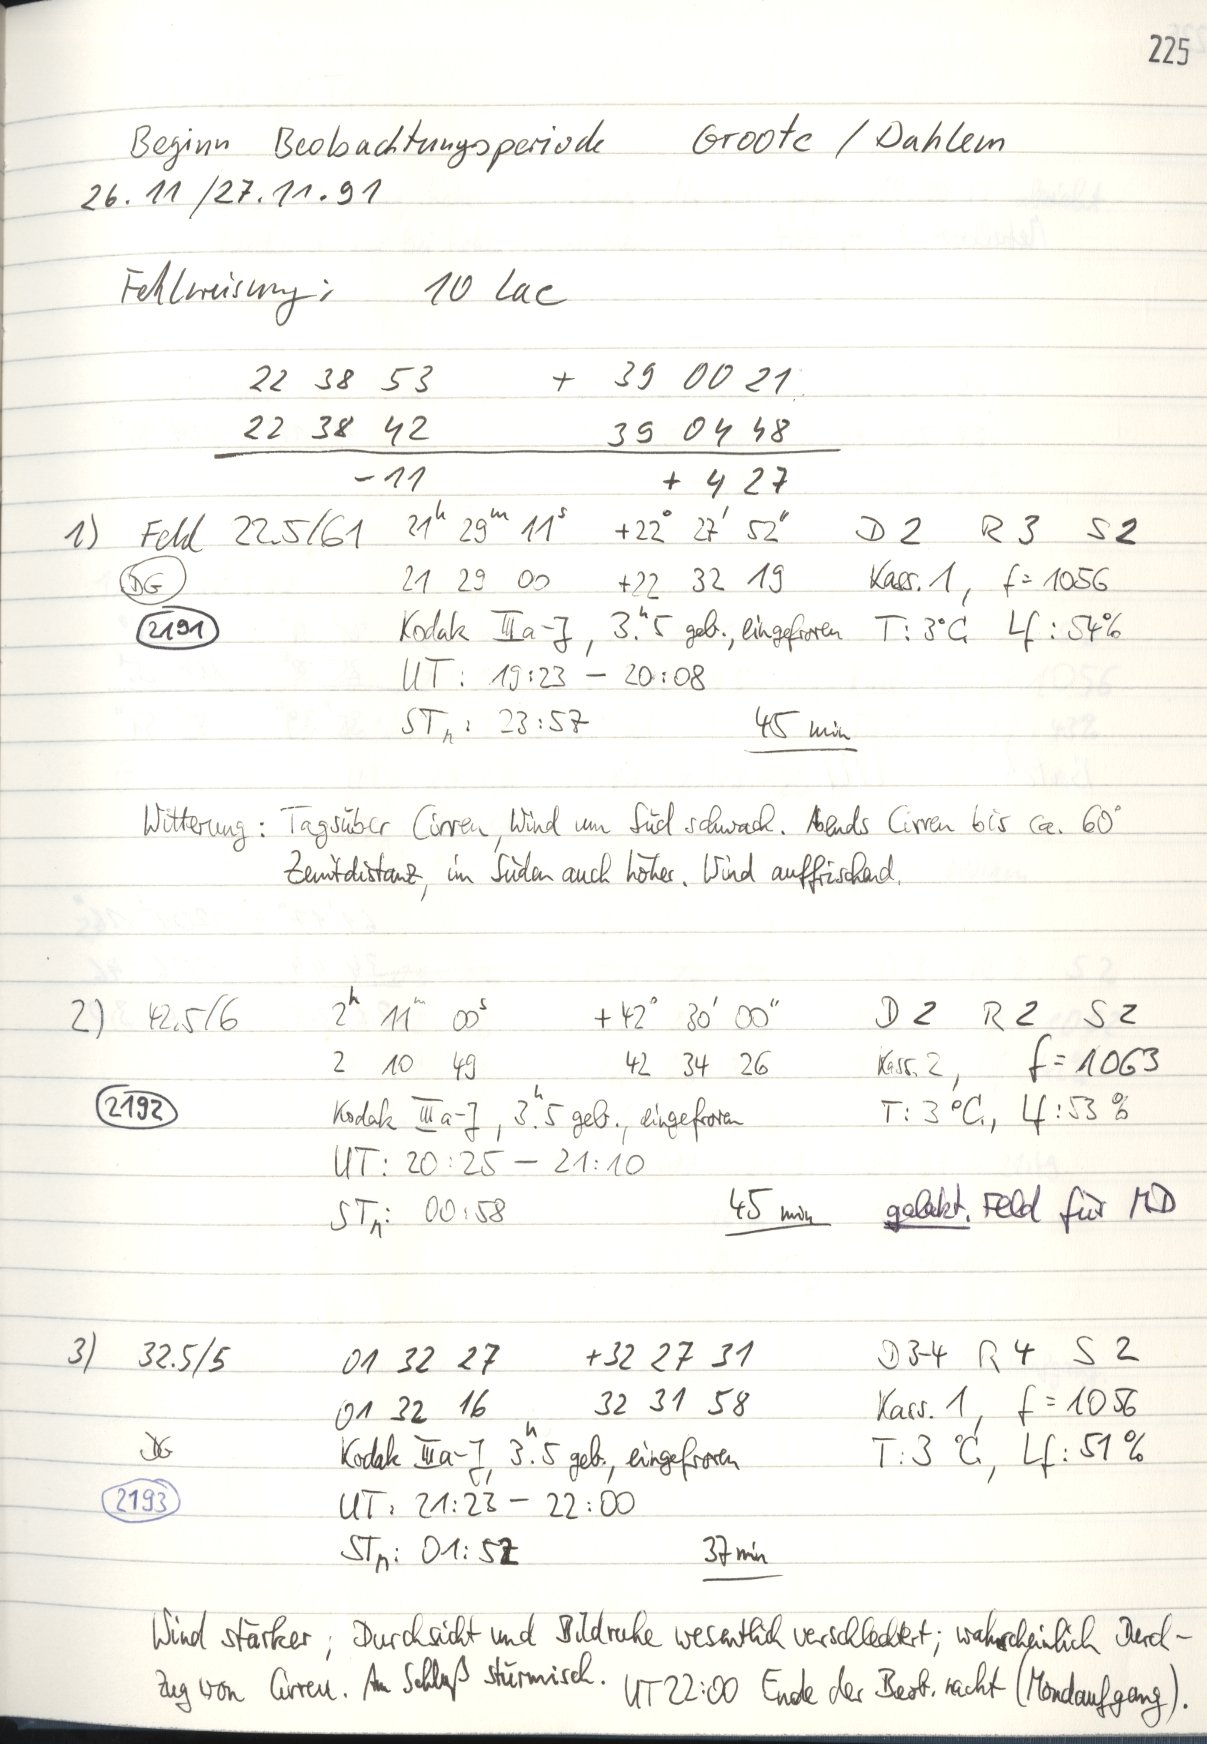 225
Beginn Beobachtungsperiode Groote / Dahlem
26.11/27.11.91
Fehlweisung: 10 Lac
22 38 53 + 39 00 21
22 38 42 39 04 48
-11 + 4 27
1) Feld 22.5/61 21h 29m 11s +22° 27' 52" D 2 R 3 S 2
DG 21 29 00 +22 32 19 Kass. 1, f = 1056
2191 Kodak IIIa-J, 3.h5 geb., eingefroren T: 3°C Lf: 54%
UT: 19:23 – 20:08
STn: 23:57 45 min
Witterung: Tagsüber Cirren, Wind um Süd schwach. Abends Cirren bis ca. 60°
Zenitdistanz, im Süden auch höher. Wind auffrischend.
2) 42.5/6 2h 11m 00s +42° 30' 00" D 2 R 2 S 2
2 10 49 42 34 26 Kass. 2, f = 1063
2192 Kodak IIIa-J, 3.h5 geb., eingefroren T: 3°C, Lf: 53%
UT: 20:25 – 21:10
STn: 00:58 45 min galakt. Feld für MD
3) 32.5/5 01 32 27 +32 27 31 D 3-4 R 4 S 2
01 32 16 32 31 58 Kass. 1, f = 1056
DG Kodak IIIa-J, 3.h5 geb., eingefroren T: 3°C, Lf: 51%
2193 UT: 21:23 – 22:00
STn: 01:57 37 min
Wind stärker; Durchsicht und Bildruhe wesentlich verschlechtert; wahrscheinlich Durch-
zug von Cirren. Am Schluß stürmisch. UT 22:00 Ende der Beob. nacht (Mondaufgang).